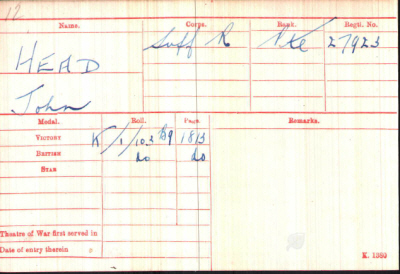 12
Name. Corps. Rank. Regtl. No.
HEAD Suff R Pte 27923
John
Medal. Roll. Page. Remarks.
VICTORY K/1/103 B9 1813
BRITISH do do
STAR
Theatre of War first served in
Date of entry therein
K. 1380